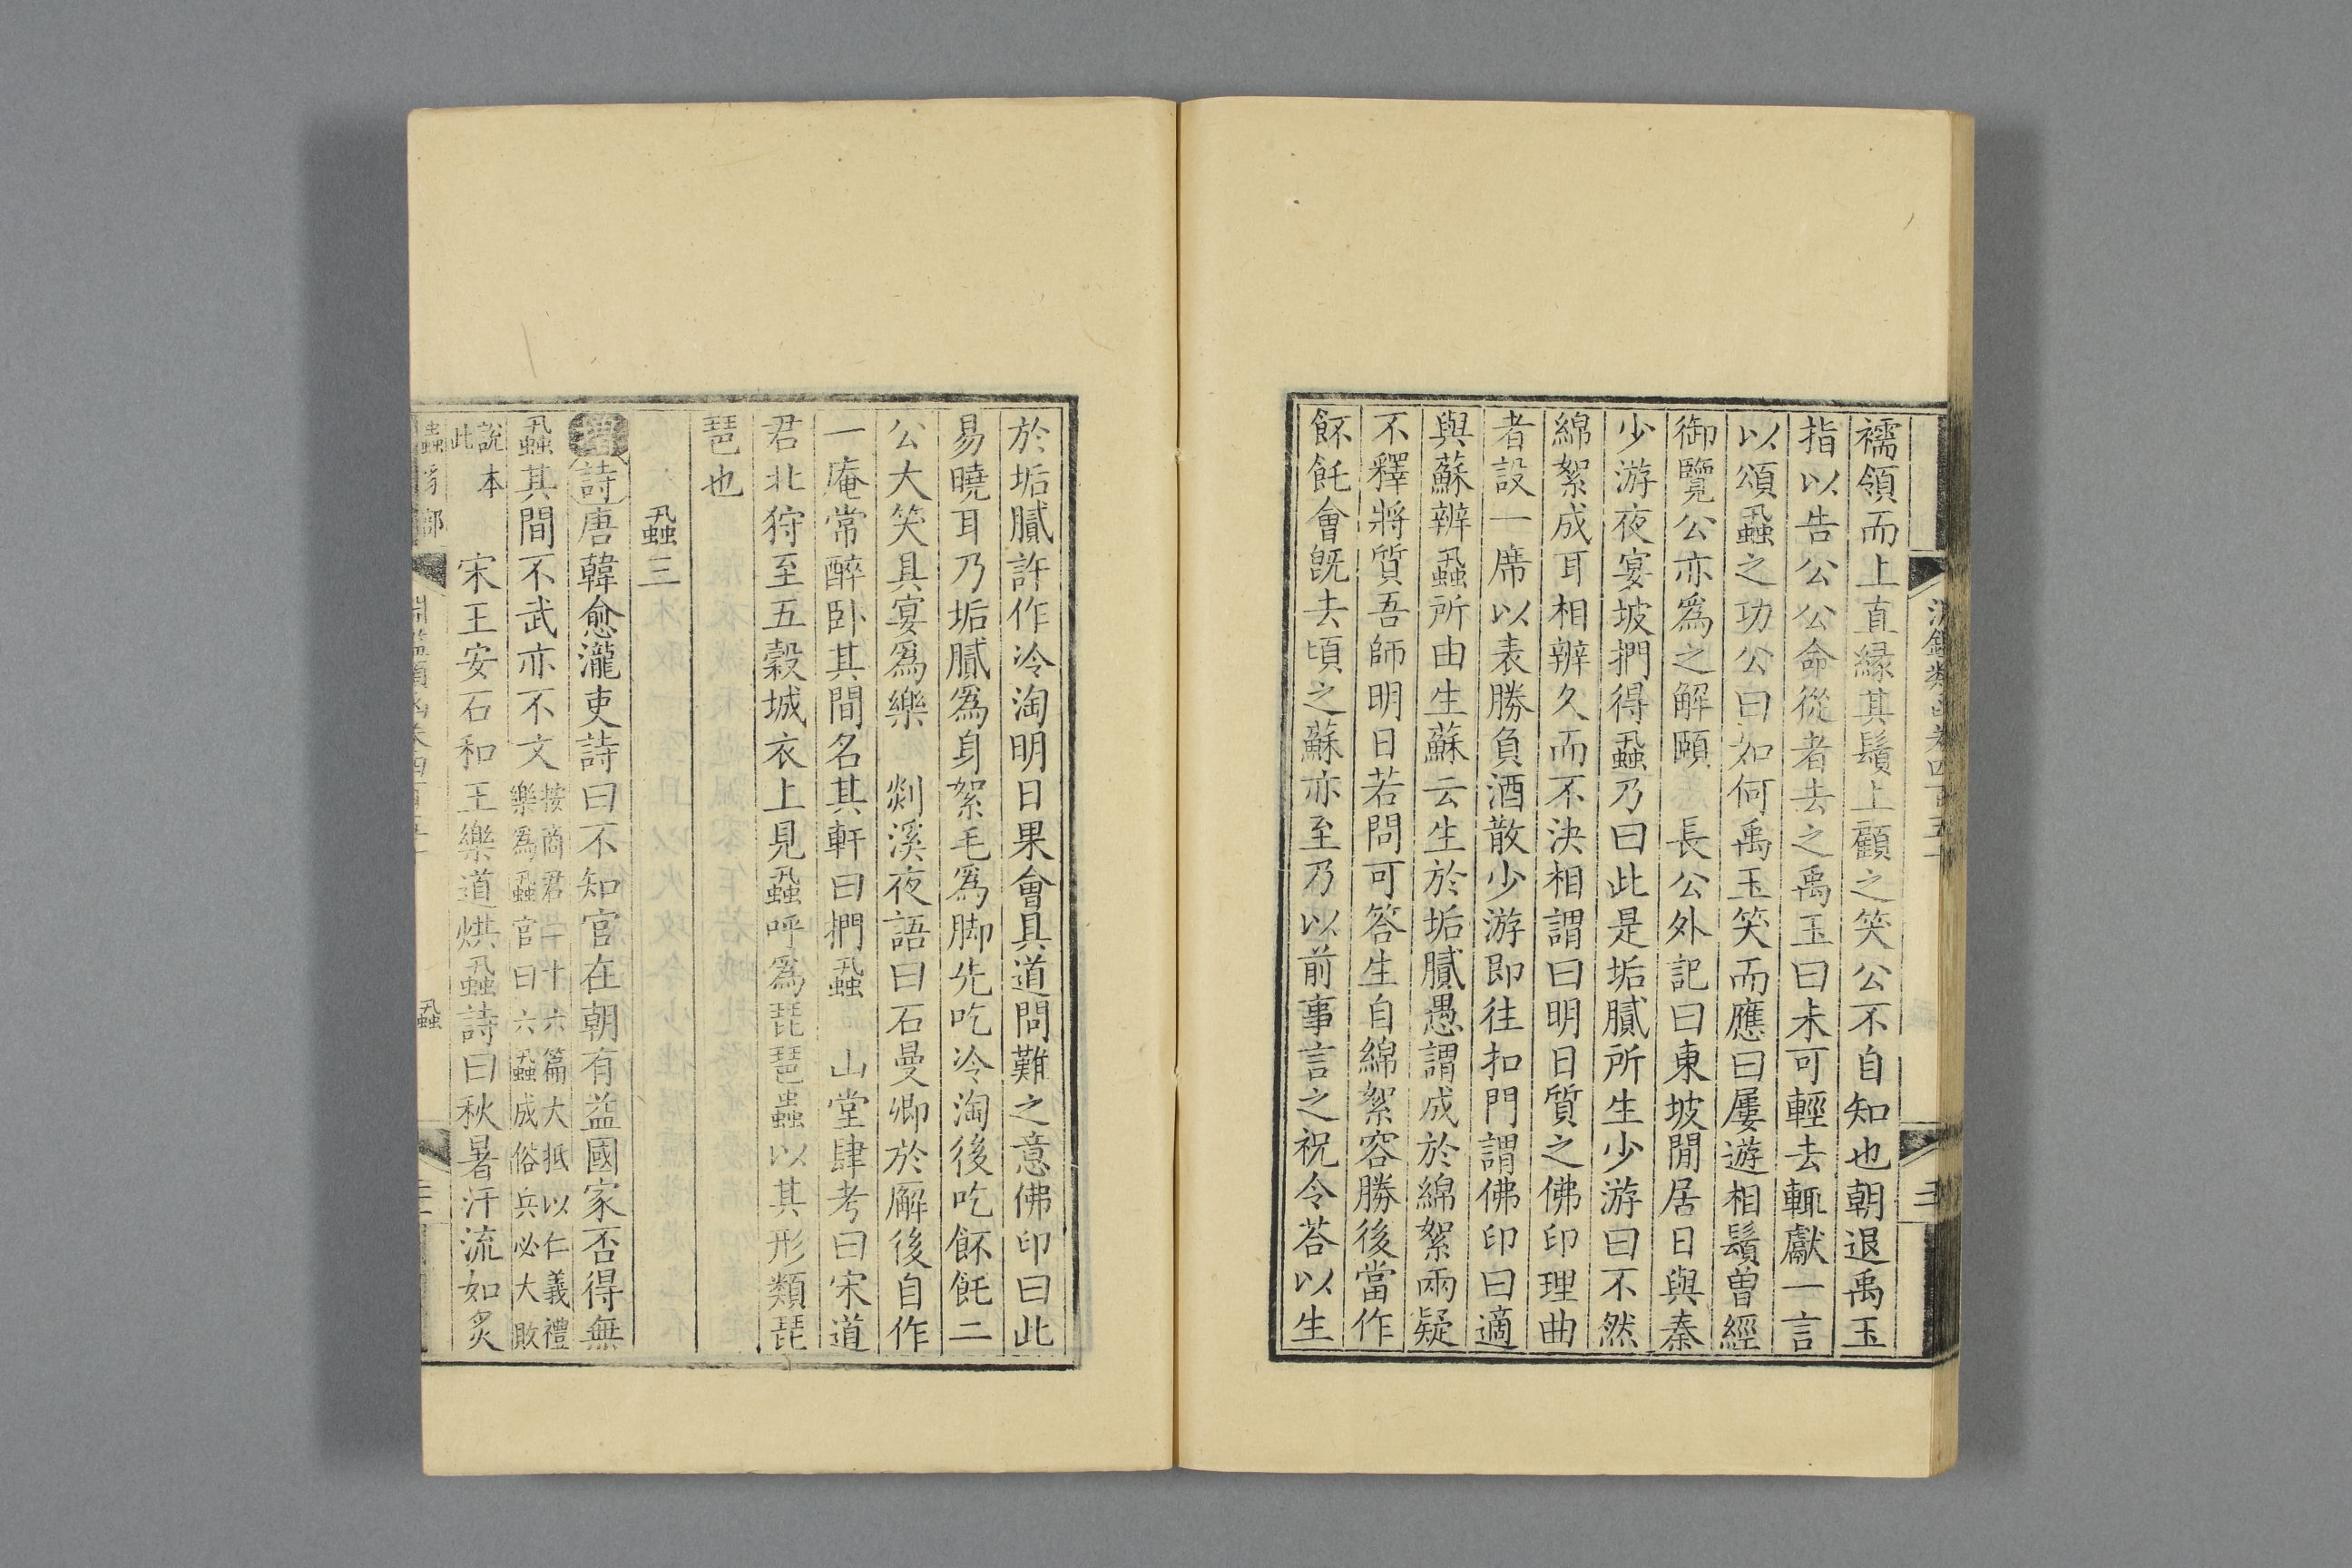 淵鑑類函卷四百五十
三
襦領而上直緣其鬚上顧之笑公不自知也朝退禹玉
指以告公公命從者去之禹玉曰未可輕去輒獻一言
以頌蝨之功公曰如何禹玉笑而應曰屢遊相鬚曽經
御覽公亦爲之解頤　長公外記曰東坡閒居日與秦
少游夜宴坡捫得蝨乃曰此是垢膩所生少游曰不然
綿絮成耳相辨久而不決相謂曰明日質之佛印理曲
者設一席以表勝負酒散少游即往扣門謂佛印曰適
與蘇辨蝨所由生蘇云生於垢膩愚謂成於綿絮兩疑
不釋將質吾師明日若問可答生自綿絮容勝後當作
餺飥會旣去頃之蘇亦至乃以前事言之祝令荅以生
於垢膩許作冷淘明日果會具道問難之意佛印曰此
易曉耳乃垢膩爲身絮毛爲脚先吃冷淘後吃餺飥二
公大笑具宴爲樂　剡溪夜語曰石曼卿於廨後自作
一庵常醉卧其間名其軒曰捫蝨　山堂肆考曰宋道
君北狩至五穀城衣上見蝨呼爲琵琶蟲以其形類琵
琶也
蝨三
詩唐韓愈瀧吏詩曰不知官在朝有益國家否得無
蝨其間不武亦不文按商君二十六篇大抵以仁義禮樂爲蝨官曰六蝨成俗兵必大敗
說本此　宋王安石和王樂道烘蝨詩曰秋暑汗流如炙
蟲豸部
蝨